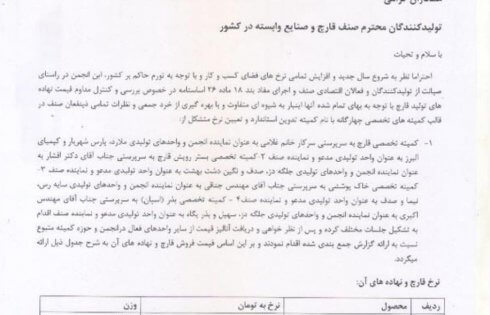 همکاران گرامی
تولیدکنندگان محترم صنف قارچ و صنایع وابسته در کشور
با سلام و تحیات
احتراما نظر به شروع سال جدید و افزایش تمامی نرخ های فضای کسب و کار و با توجه به تورم حاکم بر کشور، این انجمن در راستای
صیانت از تولیدکنندگان و فعالان اقتصادی صنف و اجرای مفاد بند ۱۸ ماده ۲۶ اساسنامه در خصوص بررسی و کنترل مداوم قیمت نهاده
های تولید قارچ با توجه به بهای تمام شده آنها اینبار به شیوه ای متفاوت و با بهره گیری از خرد جمعی و نظرات تمامی ذینفعان صنف در
قالب کمیته های تخصصی چهارگانه با نام کمیته تدوین استاندارد و تعیین نرخ متشکل از:
۱- کمیته تخصصی قارچ به سرپرستی سرکار خانم غلامی به عنوان نماینده انجمن و واحدهای تولیدی ملارد، پارس شهریار و کیمیای
البرز به عنوان واحد تولیدی مدعو و نماینده صنف ۲- کمیته تخصصی بستر رویش قارچ به سرپرستی جناب آقای دکتر افشار به
عنوان نماینده انجمن و واحدهای تولیدی جلگه دز، صدف و نگین دشت بهشت به عنوان واحد تولیدی مدعو و نماینده صنف ۳-
کمیته تخصصی خاک پوششی به سرپرستی جناب آقای مهندس جناقی به عنوان نماینده انجمن و واحدهای تولیدی سایه رس،
نیما و صدف به عنوان واحد تولیدی مدعو و نماینده صنف ۴- کمیته تخصصی بذر (اسپان) به سرپرستی جناب آقای مهندس
اکبری به عنوان نماینده انجمن و واحدهای تولیدی جلگه دز، سهیل و بذر پگاه به عنوان واحد تولیدی مدعو و نماینده صنف اقدام
به تشکیل جلسات مختلف کرده و پس از نظر خواهی و دریافت آنالیز قیمت از سایر واحدهای فعال درانجمن و حوزه کمیته متبوع
نسبت به ارائه گزارش جمع بندی شده اقدام نمودند و بر این اساس قیمت فروش قارچ و نهاده های آن به شرح جدول ذیل ارائه
میگردد.
نرخ قارچ و نهاده های آن:
ردیف محصول نرخ به تومان وزن